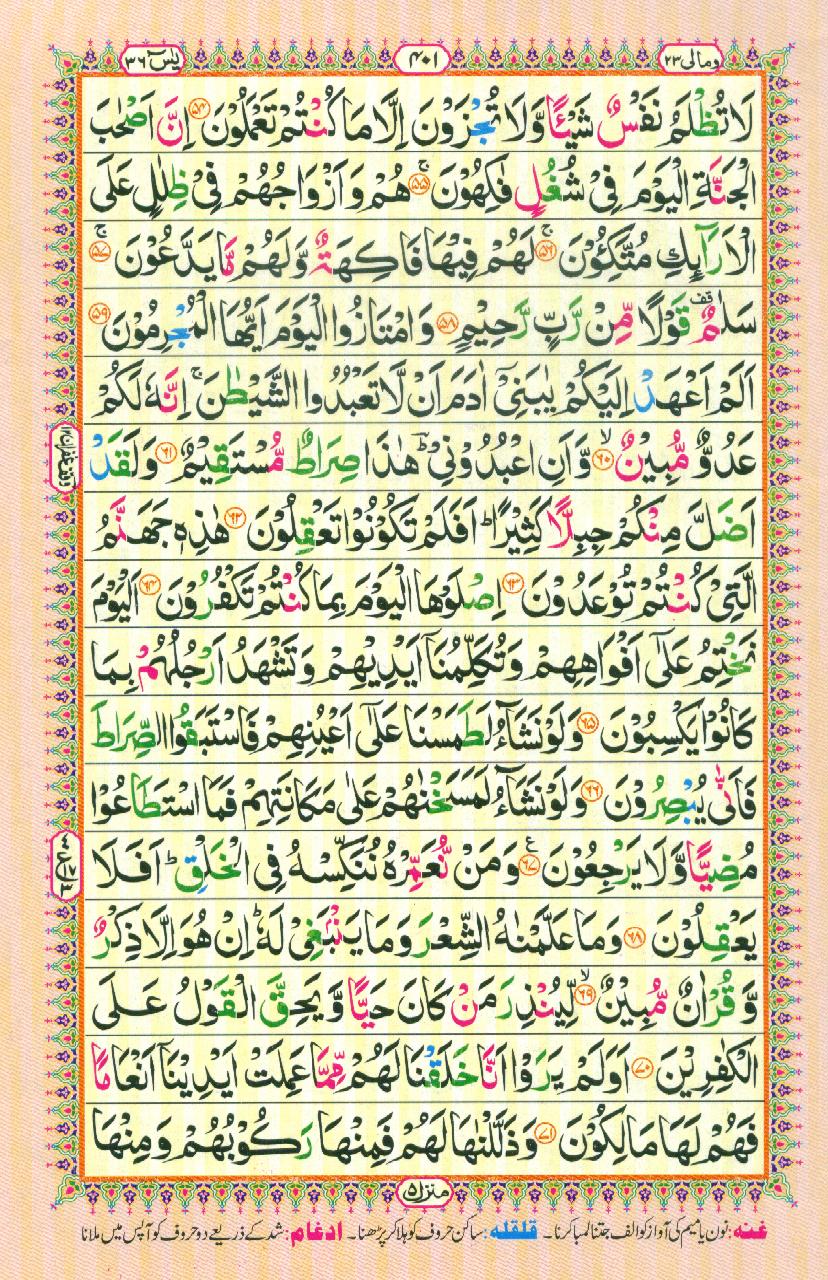 ومالی ۲۳
۴۰۱
یٰسٓ ۳۶
لَا تُظْلَمُ نَفْسٌ شَیْـًٔا وَّلَا تُجْزَوْنَ اِلَّا مَا كُنْتُمْ تَعْمَلُوْنَ ﴿۵۴﴾ اِنَّ اَصْحٰبَ
الْجَنَّةِ الْیَوْمَ فِیْ شُغُلٍ فٰكِهُوْنَ ۚ﴿۵۵﴾ هُمْ وَاَزْوَاجُهُمْ فِیْ ظِلٰلٍ عَلَی
الْاَرَآىِٕكِ مُتَّكِـُٔوْنَ ۚ﴿۵۶﴾ لَهُمْ فِیْهَا فَاكِهَةٌ وَّلَهُمْ مَّا یَدَّعُوْنَ ۚ﴿۵۷﴾
سَلٰمٌ ۫ قَوْلًا مِّنْ رَّبٍّ رَّحِیْمٍ ﴿۵۸﴾ وَامْتَازُوا الْیَوْمَ اَیُّهَا الْمُجْرِمُوْنَ ﴿۵۹﴾
اَلَمْ اَعْهَدْ اِلَیْكُمْ یٰبَنِیْۤ اٰدَمَ اَنْ لَّا تَعْبُدُوا الشَّیْطٰنَ ۚ اِنَّهٗ لَكُمْ
عَدُوٌّ مُّبِیْنٌ ۙ﴿۶۰﴾ وَّاَنِ اعْبُدُوْنِیْ ؔؕ هٰذَا صِرَاطٌ مُّسْتَقِیْمٌ ﴿۶۱﴾ وَلَقَدْ
اَضَلَّ مِنْكُمْ جِبِلًّا كَثِیْرًا ؕ اَفَلَمْ تَكُوْنُوْا تَعْقِلُوْنَ ﴿۶۲﴾ هٰذِهٖ جَهَنَّمُ
الَّتِیْ كُنْتُمْ تُوْعَدُوْنَ ﴿۶۳﴾ اِصْلَوْهَا الْیَوْمَ بِمَا كُنْتُمْ تَكْفُرُوْنَ ﴿۶۴﴾ اَلْیَوْمَ
نَخْتِمُ عَلٰۤی اَفْوَاهِهِمْ وَتُكَلِّمُنَاۤ اَیْدِیْهِمْ وَتَشْهَدُ اَرْجُلُهُمْ بِمَا
كَانُوْا یَكْسِبُوْنَ ﴿۶۵﴾ وَلَوْ نَشَآءُ لَطَمَسْنَا عَلٰۤی اَعْیُنِهِمْ فَاسْتَبَقُوا الصِّرَاطَ
فَاَنّٰی یُبْصِرُوْنَ ﴿۶۶﴾ وَلَوْ نَشَآءُ لَمَسَخْنٰهُمْ عَلٰی مَكَانَتِهِمْ فَمَا اسْتَطَاعُوْا
مُضِیًّا وَّلَا یَرْجِعُوْنَ ﴿۶۷﴾ع وَمَنْ نُّعَمِّرْهُ نُنَكِّسْهُ فِی الْخَلْقِ ؕ اَفَلَا
یَعْقِلُوْنَ ﴿۶۸﴾ وَمَا عَلَّمْنٰهُ الشِّعْرَ وَمَا یَنْۢبَغِیْ لَهٗ ؕ اِنْ هُوَ اِلَّا ذِكْرٌ
وَّقُرْاٰنٌ مُّبِیْنٌ ۙ﴿۶۹﴾ لِّیُنْذِرَ مَنْ كَانَ حَیًّا وَّیَحِقَّ الْقَوْلُ عَلَی
الْكٰفِرِیْنَ ﴿۷۰﴾ اَوَلَمْ یَرَوْا اَنَّا خَلَقْنَا لَهُمْ مِّمَّا عَمِلَتْ اَیْدِیْنَاۤ اَنْعَامًا
فَهُمْ لَهَا مٰلِكُوْنَ ﴿۷۱﴾ وَذَلَّلْنٰهَا لَهُمْ فَمِنْهَا رَكُوْبُهُمْ وَمِنْهَا
منزل ۵
غنه: نون یا میم کی آواز کو الف جتنا لمبا کرنا۔ قلقله: ساکن حروف کو ہلا کر پڑھنا۔ ادغام: شد کے ذریعے دو حروف کو آپس میں ملانا